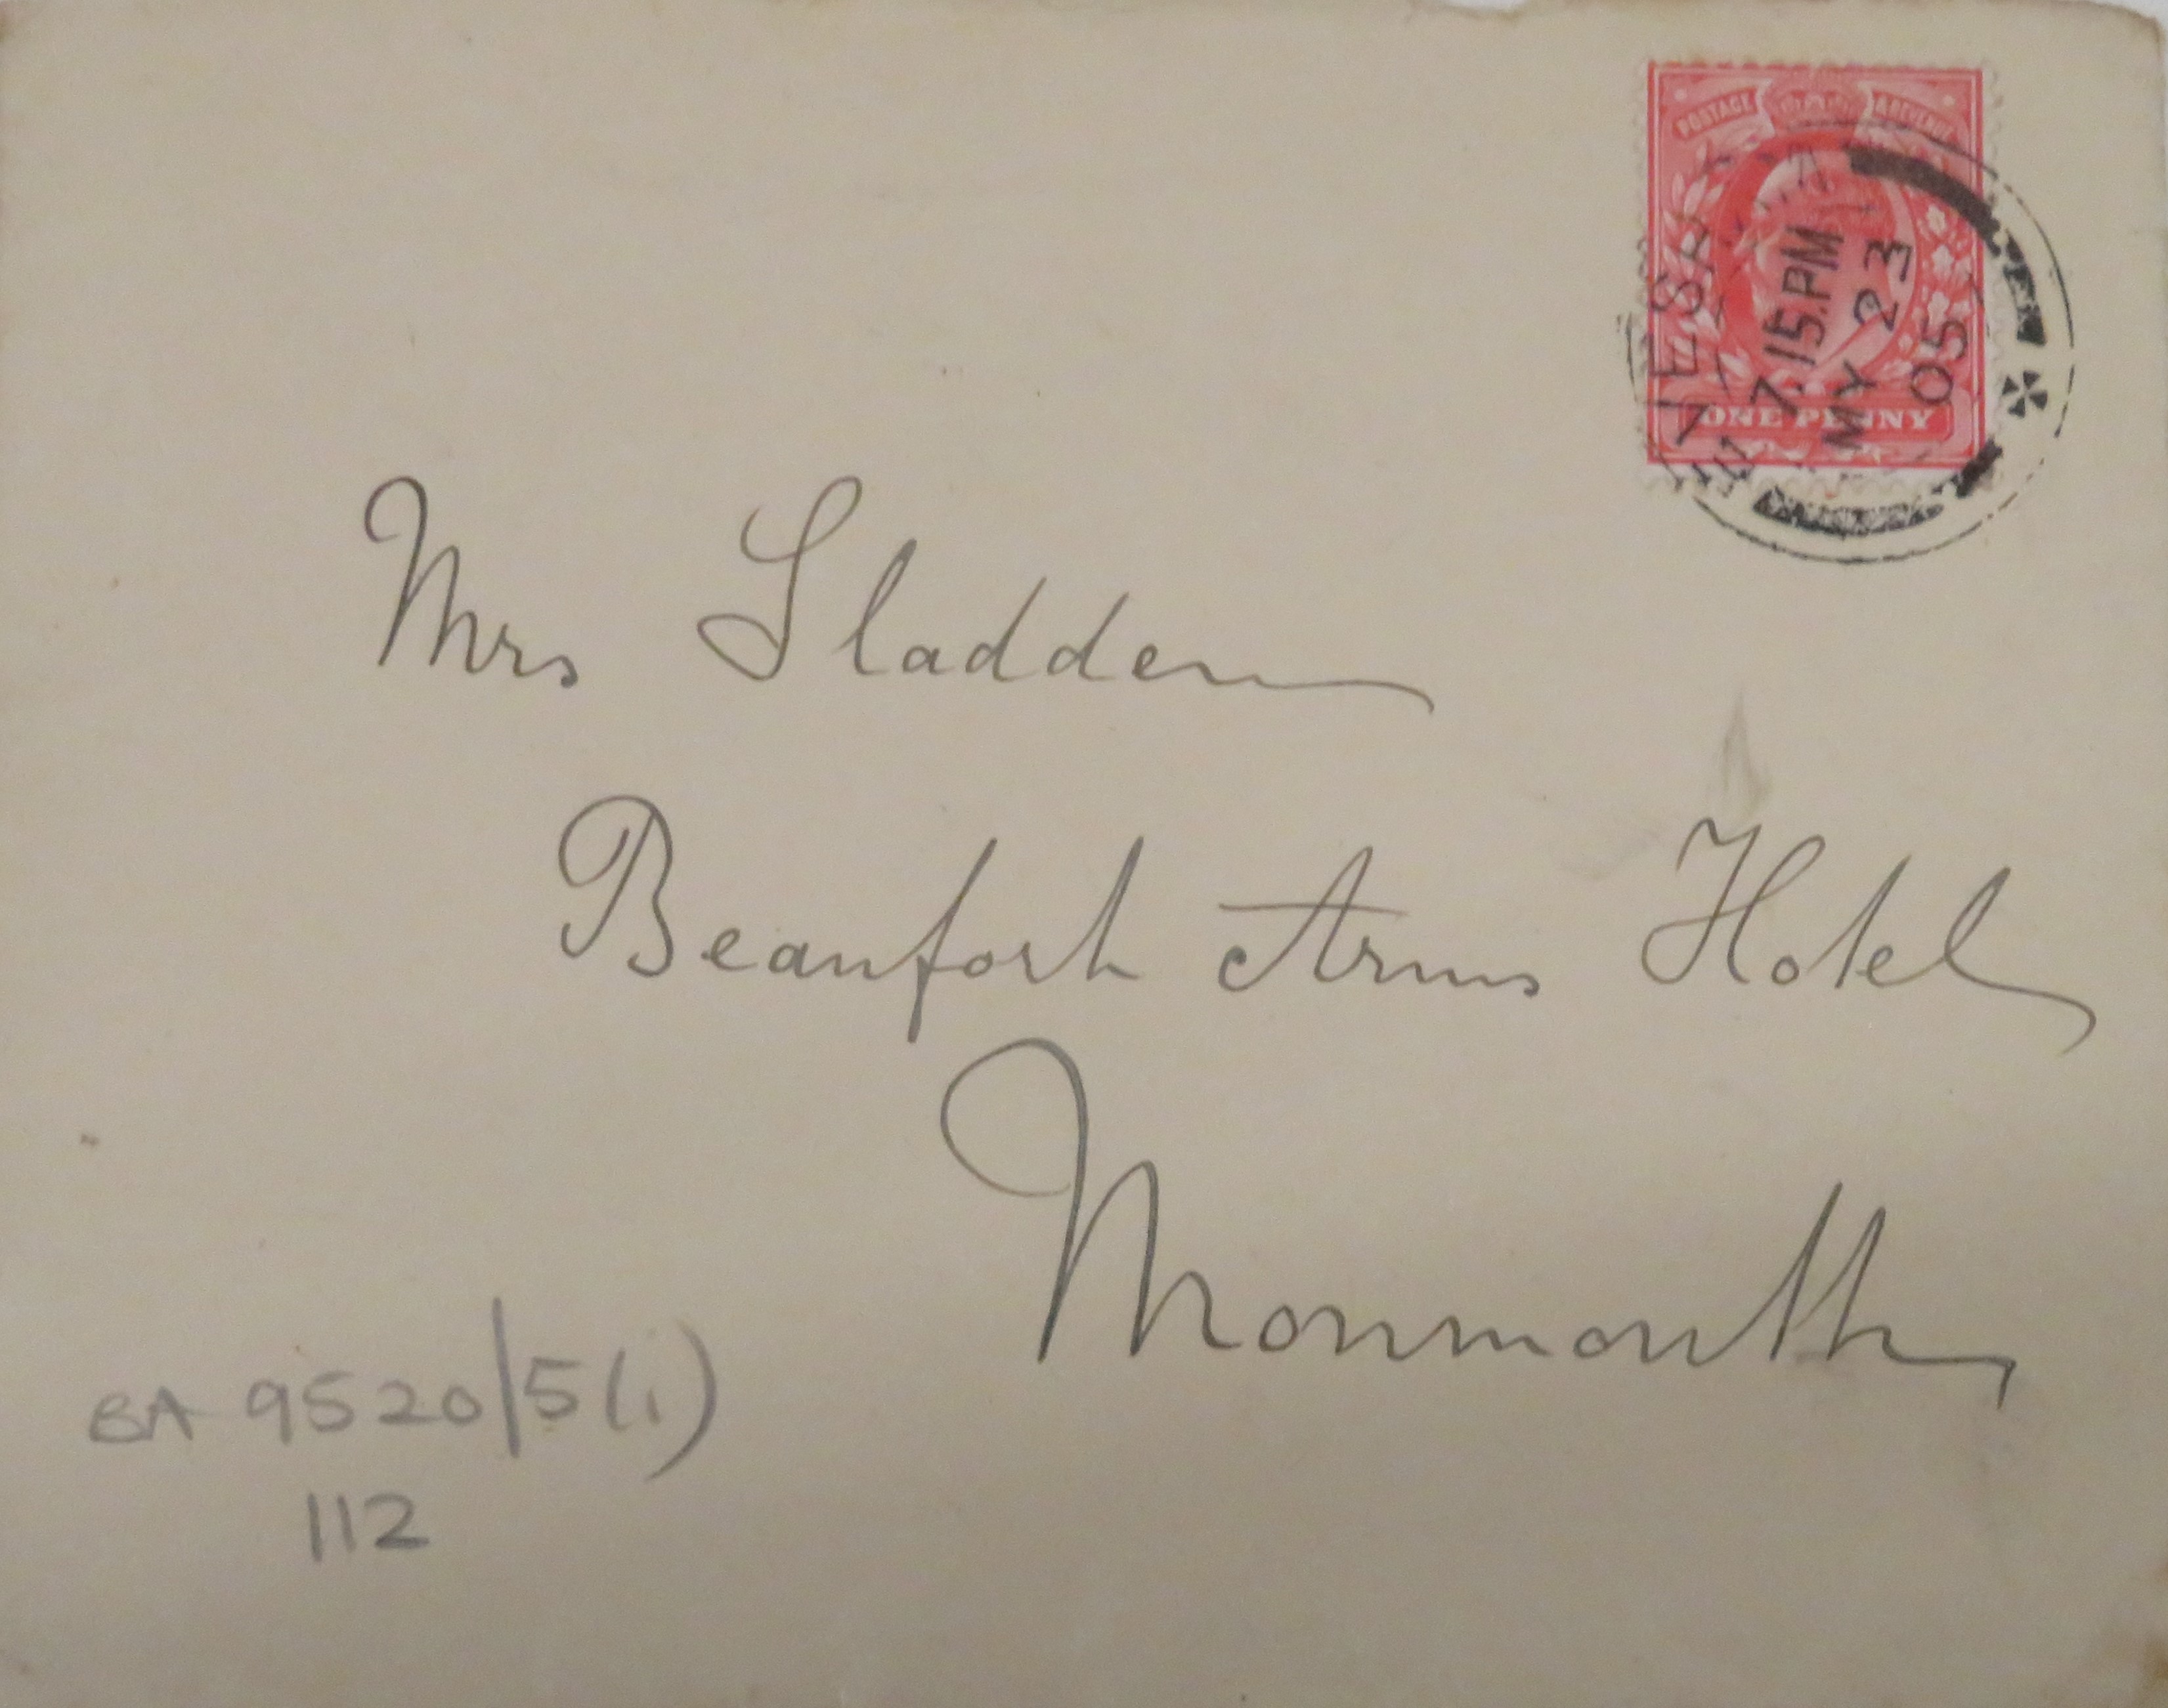 POSTAGE & REVENUE
EVESHAM
7.15.PM
MY 23
05
ONE PENNY
Mrs Sladden
Beaufort Arms Hotel
Monmouth
BA 9520/5(1)
112